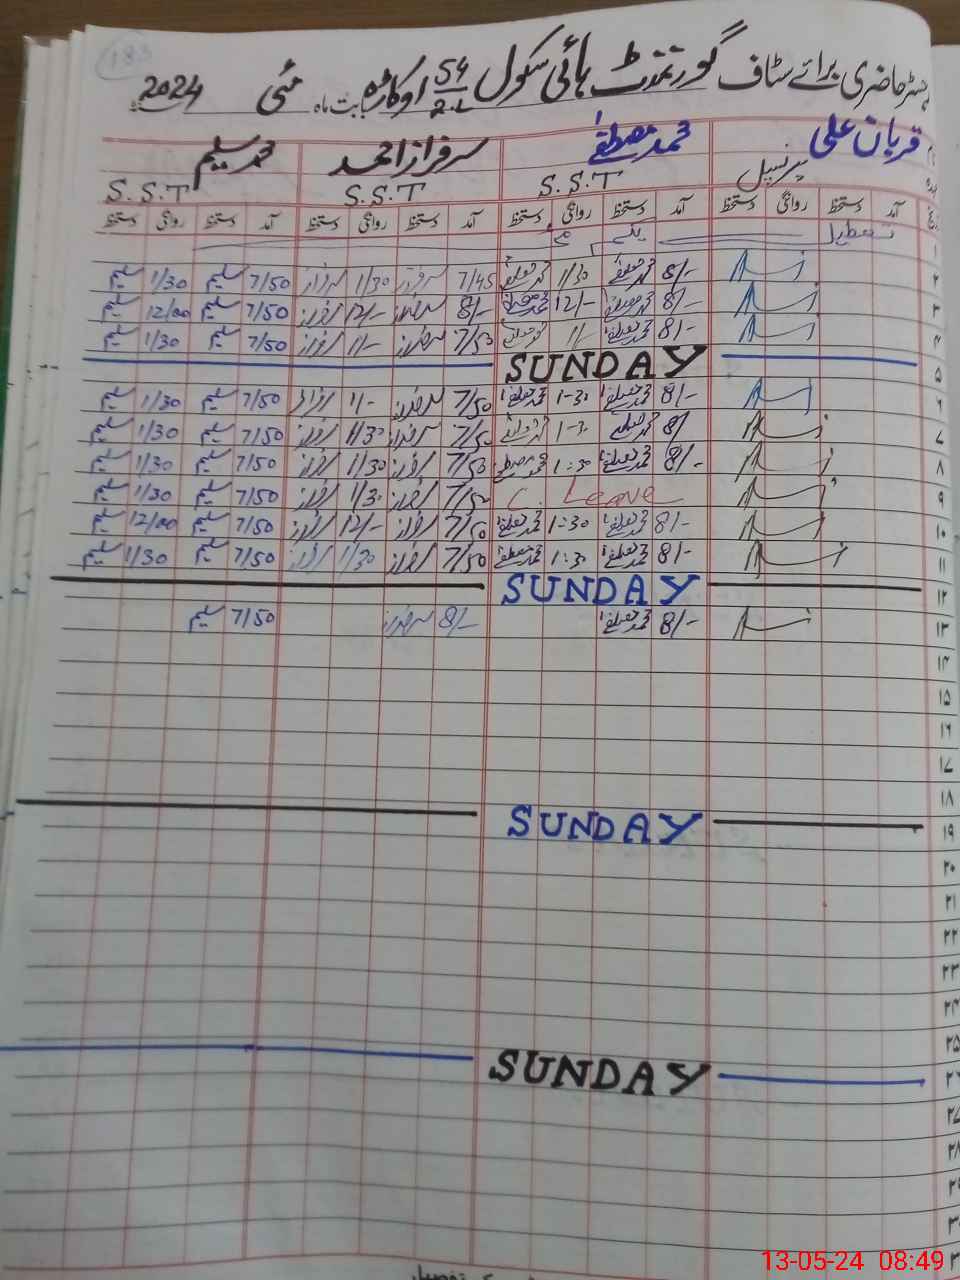 183
رجسٹر حاضری برائے سٹاف گورنمنٹ ہائی سکول 54/2.L اوکاڑہ بابت ماہ مئی 2024
قربان علی محمد مصطفیٰ سرفراز احمد محمد سلیم
پرنسپل S.S.T S.S.T S.S.T
آمد دستخط روانگی دستخط آمد دستخط روانگی دستخط آمد دستخط روانگی دستخط آمد دستخط روانگی دستخط
۱ تعطیل یکم مئی
۲ 8/- محمد مصطفیٰ 1/30 محمد مصطفیٰ 7/45 سرفراز 1/30 سرفراز 7/50 سلیم 1/30 سلیم
۳ 8/- محمد مصطفیٰ 12/- محمد مصطفیٰ 8/- سرفراز 12/- سرفراز 7/50 سلیم 12/00 سلیم
۴ 8/- محمد مصطفیٰ 1/ محمد مصطفیٰ 7/50 سرفراز 1/- سرفراز 7/50 سلیم 1/30 سلیم
۵ SUNDAY
۶ 8/- محمد مصطفیٰ 1-30 محمد مصطفیٰ 7/50 سرفراز 1/- سرفراز 7/50 سلیم 1/30 سلیم
۷ 8/ محمد مصطفیٰ 1-30 محمد مصطفیٰ 7/50 سرفراز 1/30 سرفراز 7/50 سلیم 1/30 سلیم
۸ 8/- محمد مصطفیٰ 1:30 محمد مصطفیٰ 7/50 سرفراز 1/30 سرفراز 7/50 سلیم 1/30 سلیم
۹ C. Leave 7/50 سرفراز 1/30 سرفراز 7/50 سلیم 1/30 سلیم
۱۰ 8/- محمد مصطفیٰ 1:30 محمد مصطفیٰ 7/50 سرفراز 12/- سرفراز 7/50 سلیم 12/00 سلیم
۱۱ 8/- محمد مصطفیٰ 1:30 محمد مصطفیٰ 7/50 سرفراز 1/30 سرفراز 7/50 سلیم 1/30 سلیم
۱۲ SUNDAY
۱۳ 8/- محمد مصطفیٰ 8/- سرفراز 7/50 سلیم
۱۴
۱۵
۱۶
۱۷
۱۸
۱۹ SUNDAY
۲۰
۲۱
۲۲
۲۳
۲۴
۲۵
۲۶ SUNDAY
۲۷
۲۸
۲۹
۳۰
13-05-24 08:49